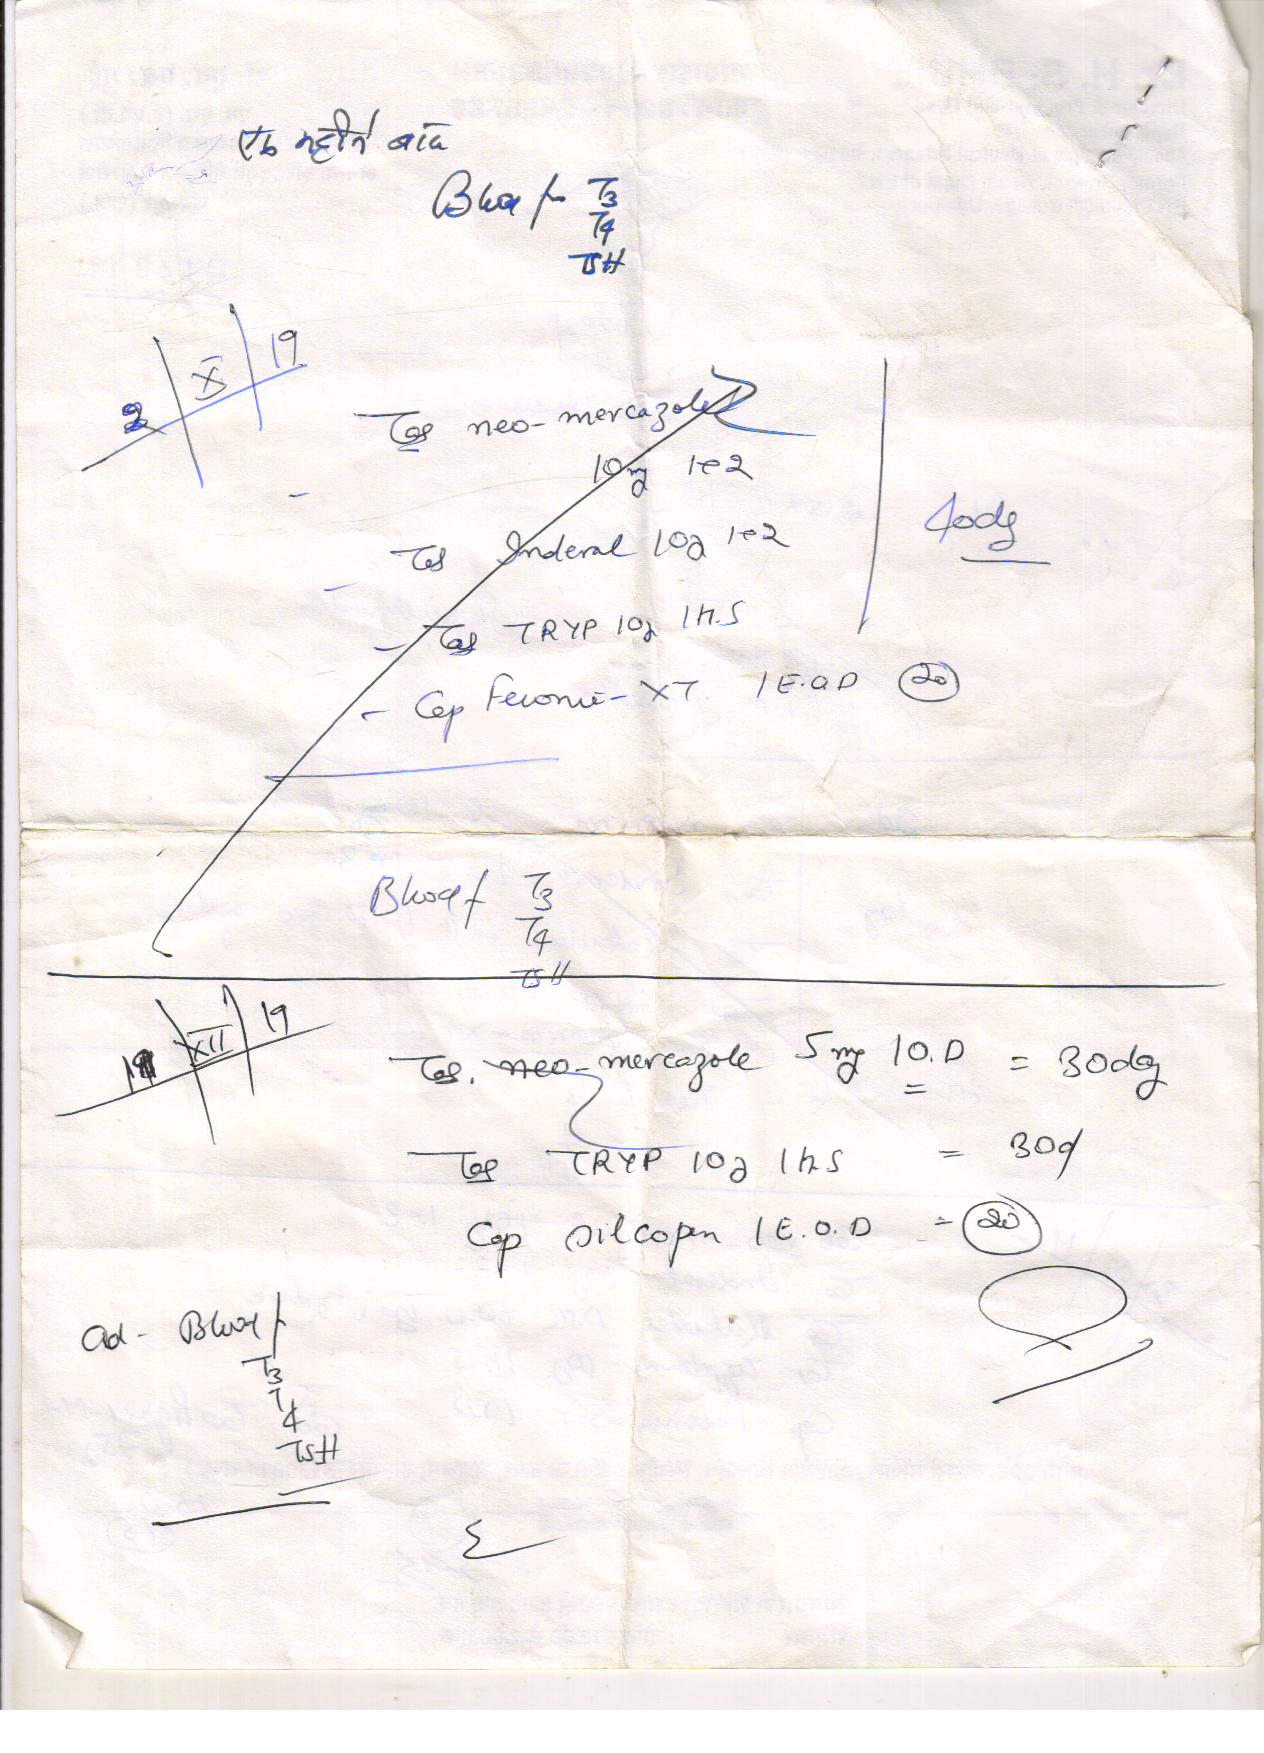 एक महीने बाद
Blood for T3
T4
TSH
2 X 19
Tab neo-mercazole
10mg 1+2
Tab Inderal 10g 1+2
Tab TRYP 10g 1 h.S
Cap Feronic-XT. 1 E.O.D 20
40dg
Blood f T3
T4
TSH
19 XII 19
Tab. neo-mercazole 5mg 1 O.D = 30dg
Tab TRYP 10g 1 h.S = 30d
Cap Silcopen 1 E.O.D = 20
ad - Blood f
T3
T4
TSH